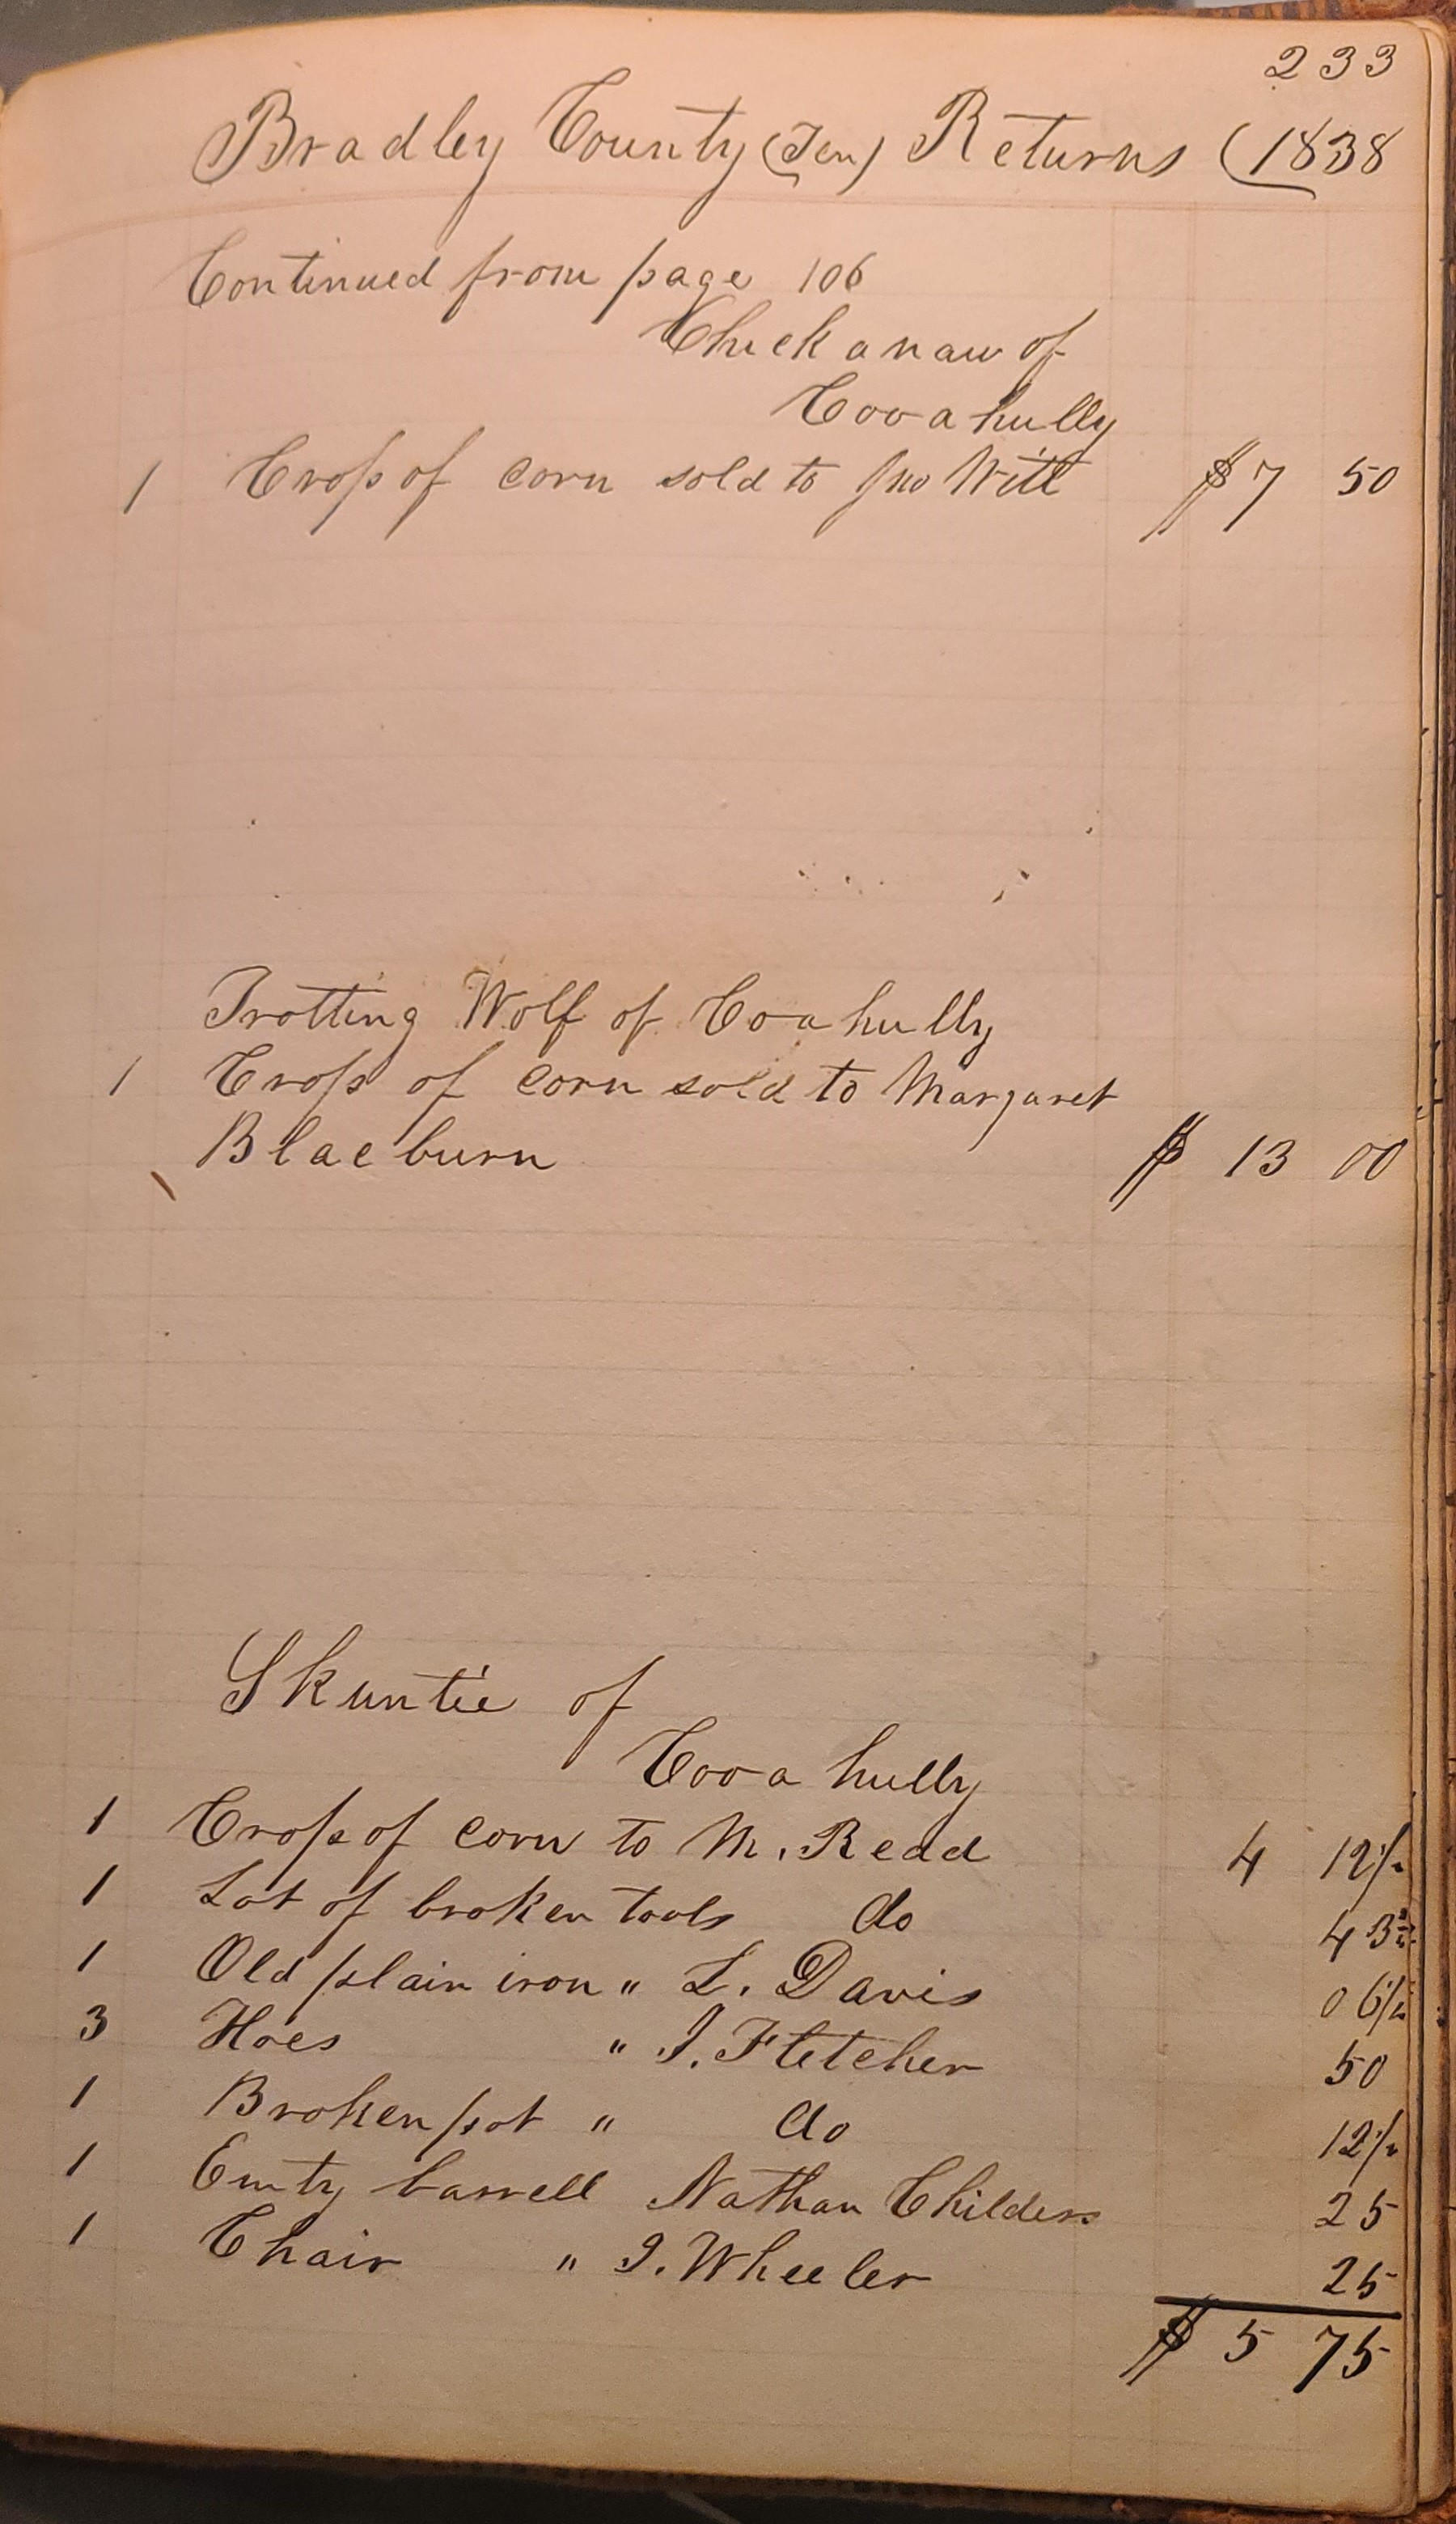 233
Bradley County (Ten) Returns (1838
Continued from page 106
Chickanaw of
Cooahully
1 Crop of corn sold to Jno Witt $7 50
Trotting Wolf of Coahully
1 Crop of corn sold to Margaret
Blacburn $ 13 00
Skuntie of
Cooahully
1 Crop of corn to M. Read 4 12½
1 Lot of broken tools do 43¾
1 Old plain iron " L. Davis 06¼
3 Hoes " J. Fletcher 50
1 Broken pot " do 12½
1 Emty barrell Nathan Childers 25
1 Chair " J. Wheeler 25
$ 5 75